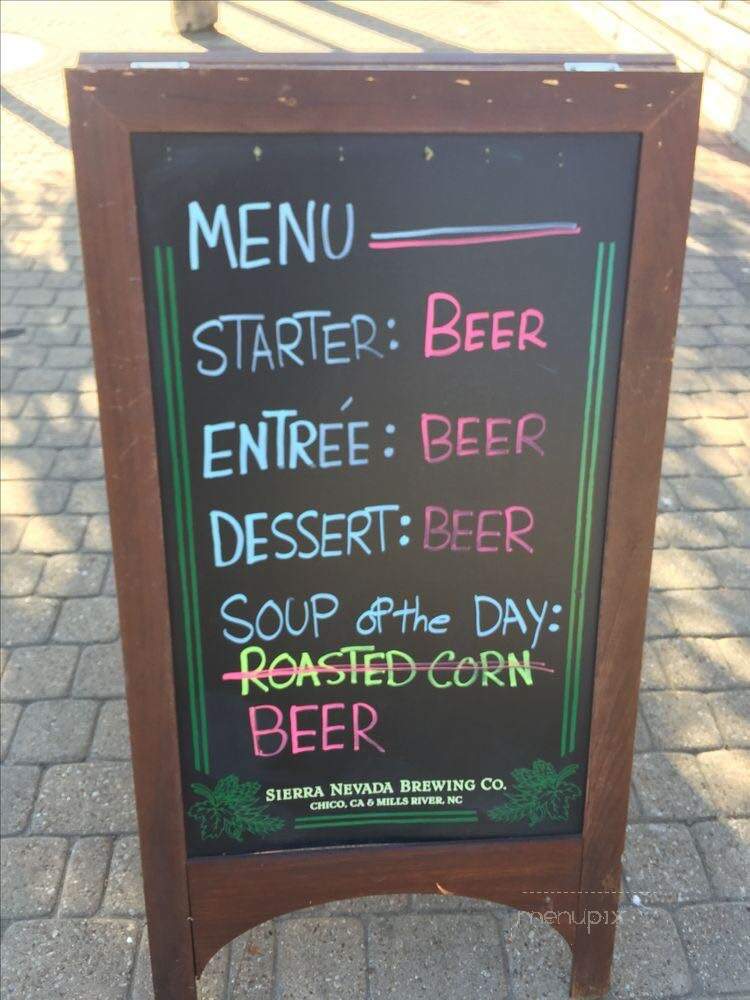 MENU
STARTER: BEER
ENTRÉE: BEER
DESSERT: BEER
SOUP of the DAY:
ROASTED CORN
BEER
SIERRA NEVADA BREWING CO.
CHICO, CA & MILLS RIVER, NC
menupix